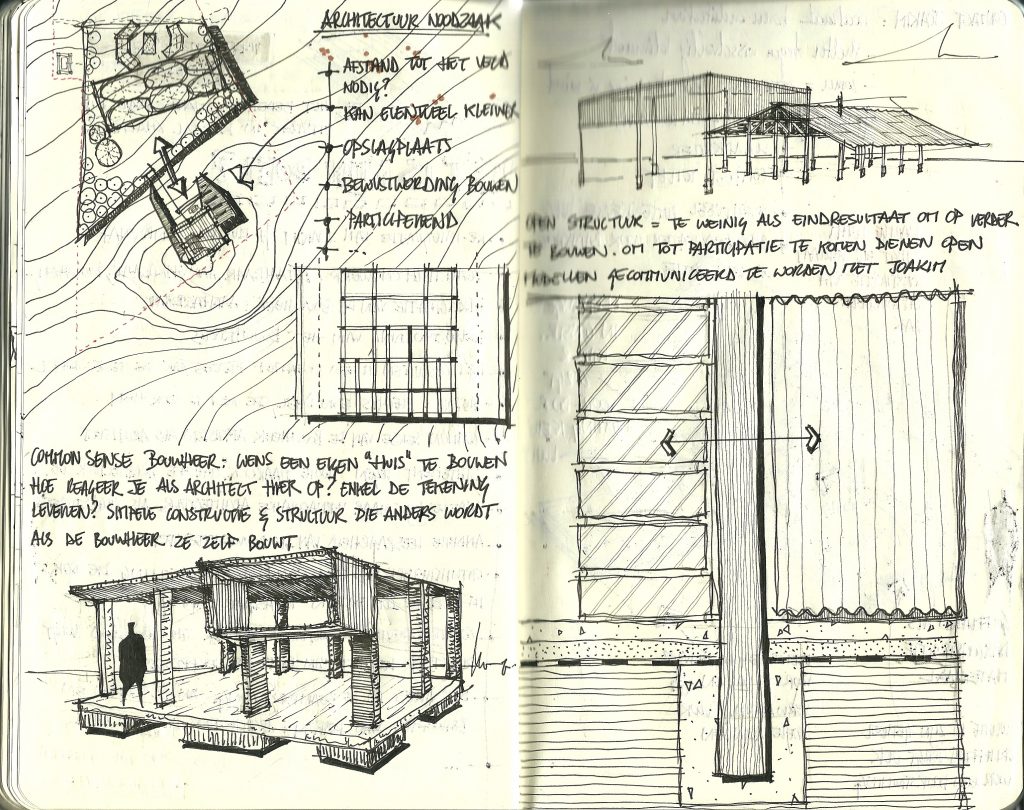 ARCHITECTUUR NOODZAAK
AFSTAND TOT HET VELD
NODIG?
KAN EVENTUEEL KLEINER
OPSLAGPLAATS
BEWUSTWORDING BOUWEN
PARTICIPEREND
...
COMMON SENSE BOUWHEER: WENS EEN EIGEN "HUIS" TE BOUWEN
HOE REAGEER JE ALS ARCHITECT HIER OP? ENKEL DE TEKENING
LEVEREN? SIMPELE CONSTRUCTIE & STRUCTUUR DIE ANDERS WORDT
ALS DE BOUWHEER ZE ZELF BOUWT
OPEN STRUCTUUR = TE WEINIG ALS EINDRESULTAAT OM OP VERDER
TE BOUWEN. OM TOT PARTICIPATIE TE KOMEN DIENEN OPEN
MODELLEN GECOMMUNICEERD TE WORDEN MET JOAKIM